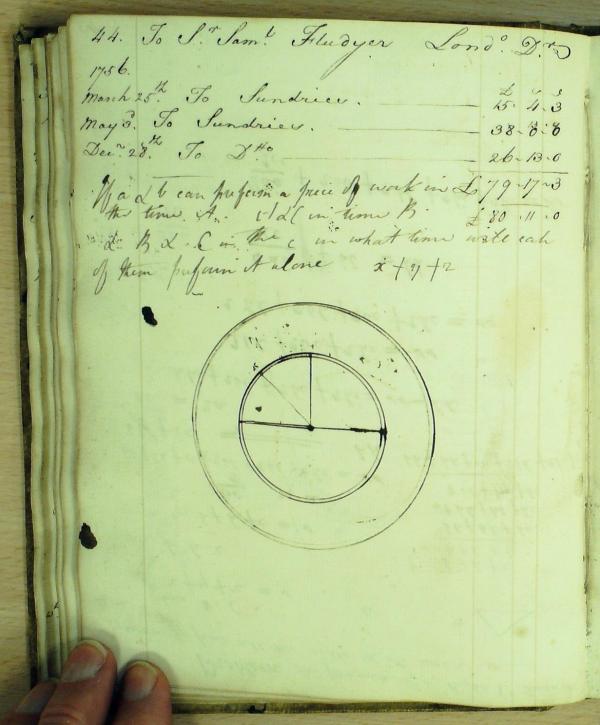 44. To Sr Saml Fludyer Londo. Dr
1756.
£ s
March 25th To Sundries. 15. 4. 3
May 3d. To Sundries. 38-0-0
Decr 28th. To Dtto 26-13-0
If a & b can perform a piece of work in £79-17-3
the time A. & C in time B. £80. 11. 0
& B & C in the c in what time will each
of them perform it alone x+y+z